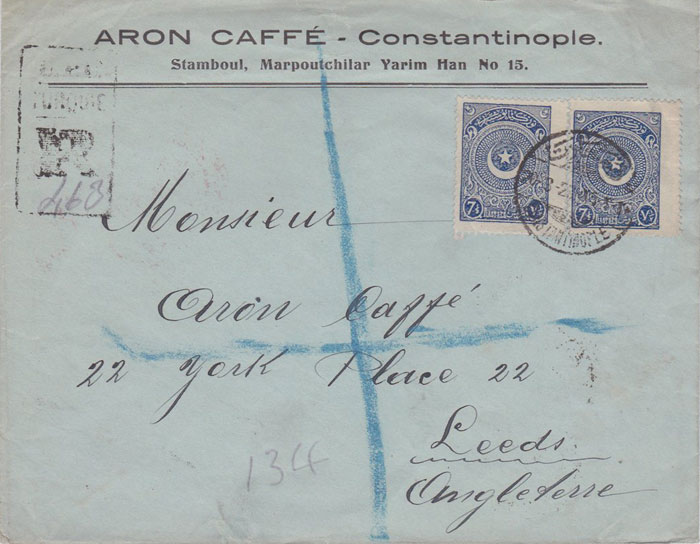 ARON CAFFÉ - Constantinople.
Stamboul, Marpoutchilar Yarim Han No 15.
R
468
7½ 7½
Monsieur
Aron Caffé
22 York Place 22
Leeds
Angleterre
134